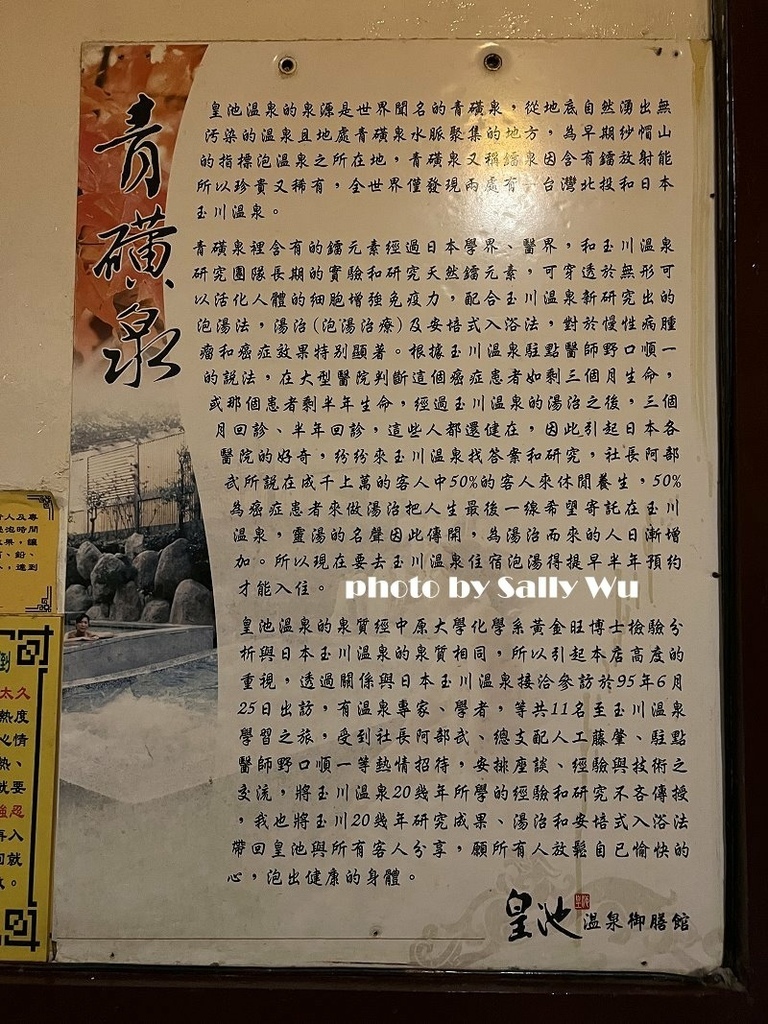 青磺泉
皇池溫泉的泉源是世界聞名的青磺泉，從地底自然湧出無
污染的溫泉且地處青磺泉水脈聚集的地方，為早期紗帽山
的指標泡溫泉之所在地，青磺泉又稱鐳泉因含有鐳放射能
所以珍貴又稀有，全世界僅發現兩處有 台灣北投和日本
玉川溫泉。
青磺泉裡含有的鐳元素經過日本學界、醫界，和玉川溫泉
研究團隊長期的實驗和研究天然鐳元素，可穿透於無形可
以活化人體的細胞增強免疫力，配合玉川溫泉新研究出的
泡湯法，湯治(泡湯治療)及安培式入浴法，對於慢性病腫
瘤和癌症效果特別顯著。根據玉川溫泉駐點醫師野口順一
的說法，在大型醫院判斷這個癌症患者如剩三個月生命，
或那個患者剩半年生命，經過玉川溫泉的湯治之後，三個
月回診、半年回診，這些人都還健在，因此引起日本各
醫院的好奇，紛紛來玉川溫泉找答案和研究，社長阿部
武所說在成千上萬的客人中50%的客人來休閒養生，50%
為癌症患者來做湯治把人生最後一線希望寄託在玉川
溫泉，靈湯的名聲因此傳開，為湯治而來的人日漸增
加。所以現在要去玉川溫泉住宿泡湯得提早半年預約
才能入住。
photo by Sally Wu
皇池溫泉的泉質經中原大學化學系黃金旺博士檢驗分
析與日本玉川溫泉的泉質相同，所以引起本店高度的
重視，透過關係與日本玉川溫泉接洽參訪於95年6月
25日出訪，有溫泉專家、學者，等共11名至玉川溫泉
學習之旅，受到社長阿部武、總支配人工藤肇、駐點
醫師野口順一等熱情招待，安排座談、經驗與技術之
交流，將玉川溫泉20幾年所學的經驗和研究不吝傳授
，我也將玉川20幾年研究成果、湯治和安培式入浴法
帶回皇池與所有客人分享，願所有人放鬆自己愉快的
心，泡出健康的身體。
皇池溫泉御膳館
人及專
泡時間
果，讓
、鉛、
，達到
到
太久
熱度
心情
熱、
就要
強忍
再入
回就
。